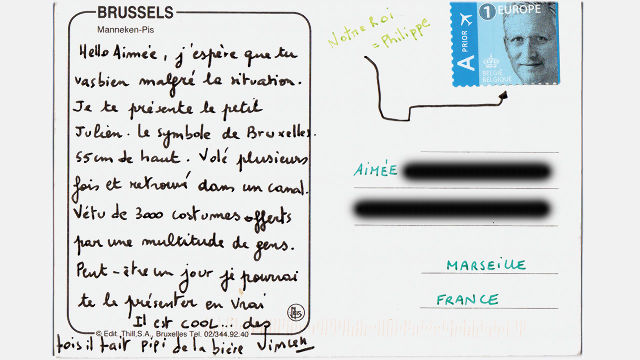 BRUSSELS
Manneken-Pis
Hello Aimée, j'espère que tu
vas bien malgré la situation.
Je te présente le petit
Julien. le symbole de Bruxelles.
55cm de haut. Volé plusieurs
fois et retrouvé dans un canal.
Vêtu de 3000 costumes offerts
par une multitude de gens.
Peut-être un jour je pourrai
te le présenter en vrai
Il est cool... des
© Edit. Thill.S.A., Bruxelles Tel. 02/344.92.40
fois il fait pipi de la bière
Notre Roi
= Philippe
A PRIOR
1 EUROPE
BELGIË
BELGIQUE
AIMÉE
MARSEILLE
FRANCE